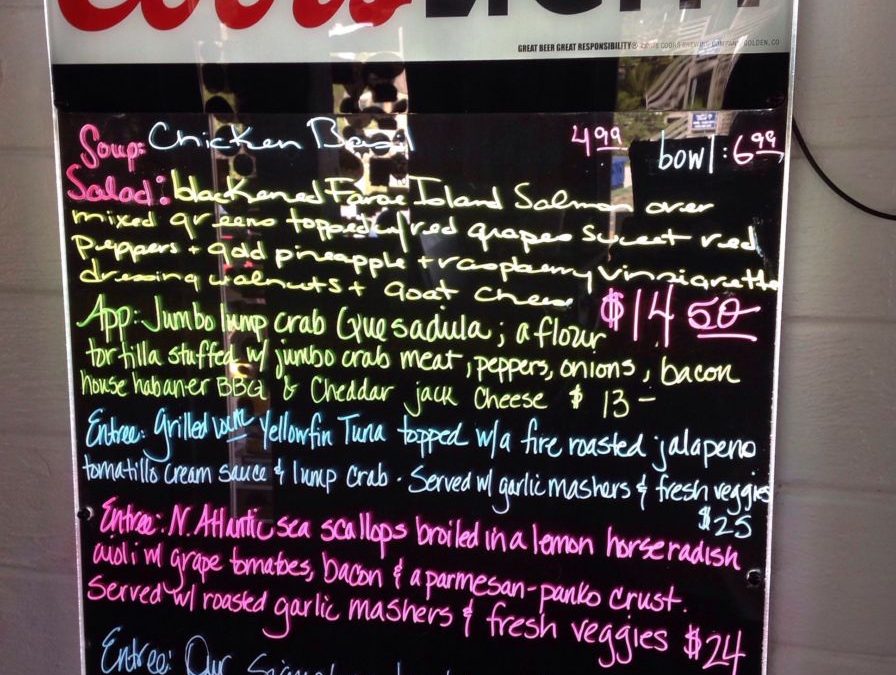 Coors LIGHT
GREAT BEER GREAT RESPONSIBILITY® COORS BREWING COMPANY, GOLDEN, CO
Soup: Chicken Basil 4.99 bowl: 6.99
Salad: blackened Faroe Island Salmon over
mixed greens topped w/ red grapes sweet red
peppers + gold pineapple + raspberry vinaigrette
dressing walnuts + goat cheese $14.50
App: Jumbo lump crab Quesadula; a flour
tortilla stuffed w/ jumbo crab meat, peppers, onions, bacon
house habaner BBQ & Cheddar jack Cheese $ 13 -
Entree: Grilled Yellowfin Tuna topped w/ a fire roasted jalapeno
tomatillo cream sauce & lump crab. Served w/ garlic mashers & fresh veggies
$25
Entree: N. Atlantic sea scallops broiled in a lemon horseradish
aioli w/ grape tomatoes, bacon & a parmesan-panko crust.
Served w/ roasted garlic mashers & fresh veggies $24
Entree: Our